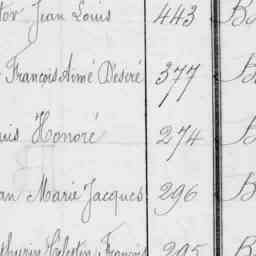 tor Jean Louis 443 B
François Aimé Désiré 377 B
uis Honoré 274 B
an Marie Jacques 296 B
thurin Célestin François 295 B